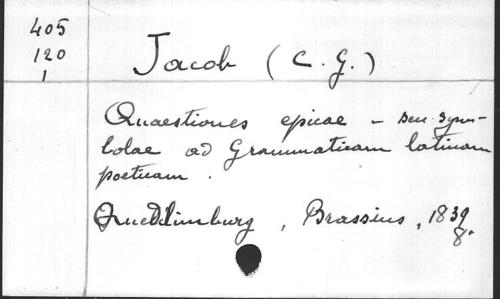 405
120
1
Jacob (C. G.)
Quaestiones epicae – seu Sym-
bolae ad Grammaticam latinam
poeticam .
Quedlimburg , Brassius , 1839
8°